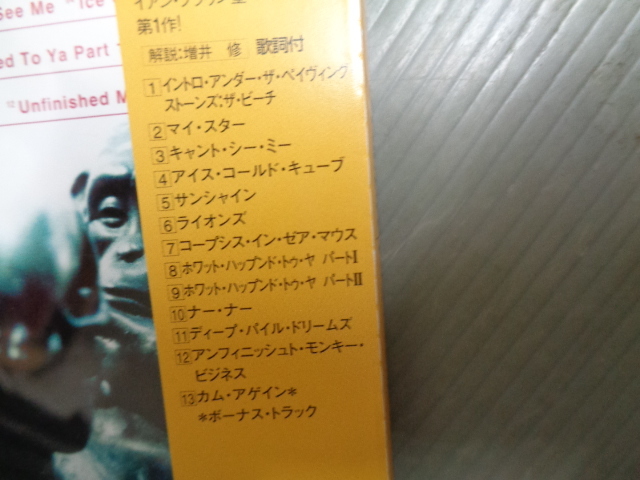 See Me "Ice
ed To Ya Part
12 Unfinished M
第1作!
解説:増井 修 歌詞付
1 イントロ・アンダー・ザ・ペイヴィング
ストーンズ:ザ・ビーチ
2 マイ・スター
3 キャント・シー・ミー
4 アイス・コールド・キューブ
5 サンシャイン
6 ライオンズ
7 コープシス・イン・ゼア・マウス
8 ホワット・ハップンド・トゥ・ヤ パートI
9 ホワット・ハップンド・トゥ・ヤ パートII
10 ナー・ナー
11 ディープ・パイル・ドリームズ
12 アンフィニッシュト・モンキー・
ビジネス
13 カム・アゲイン*
*ボーナス・トラック